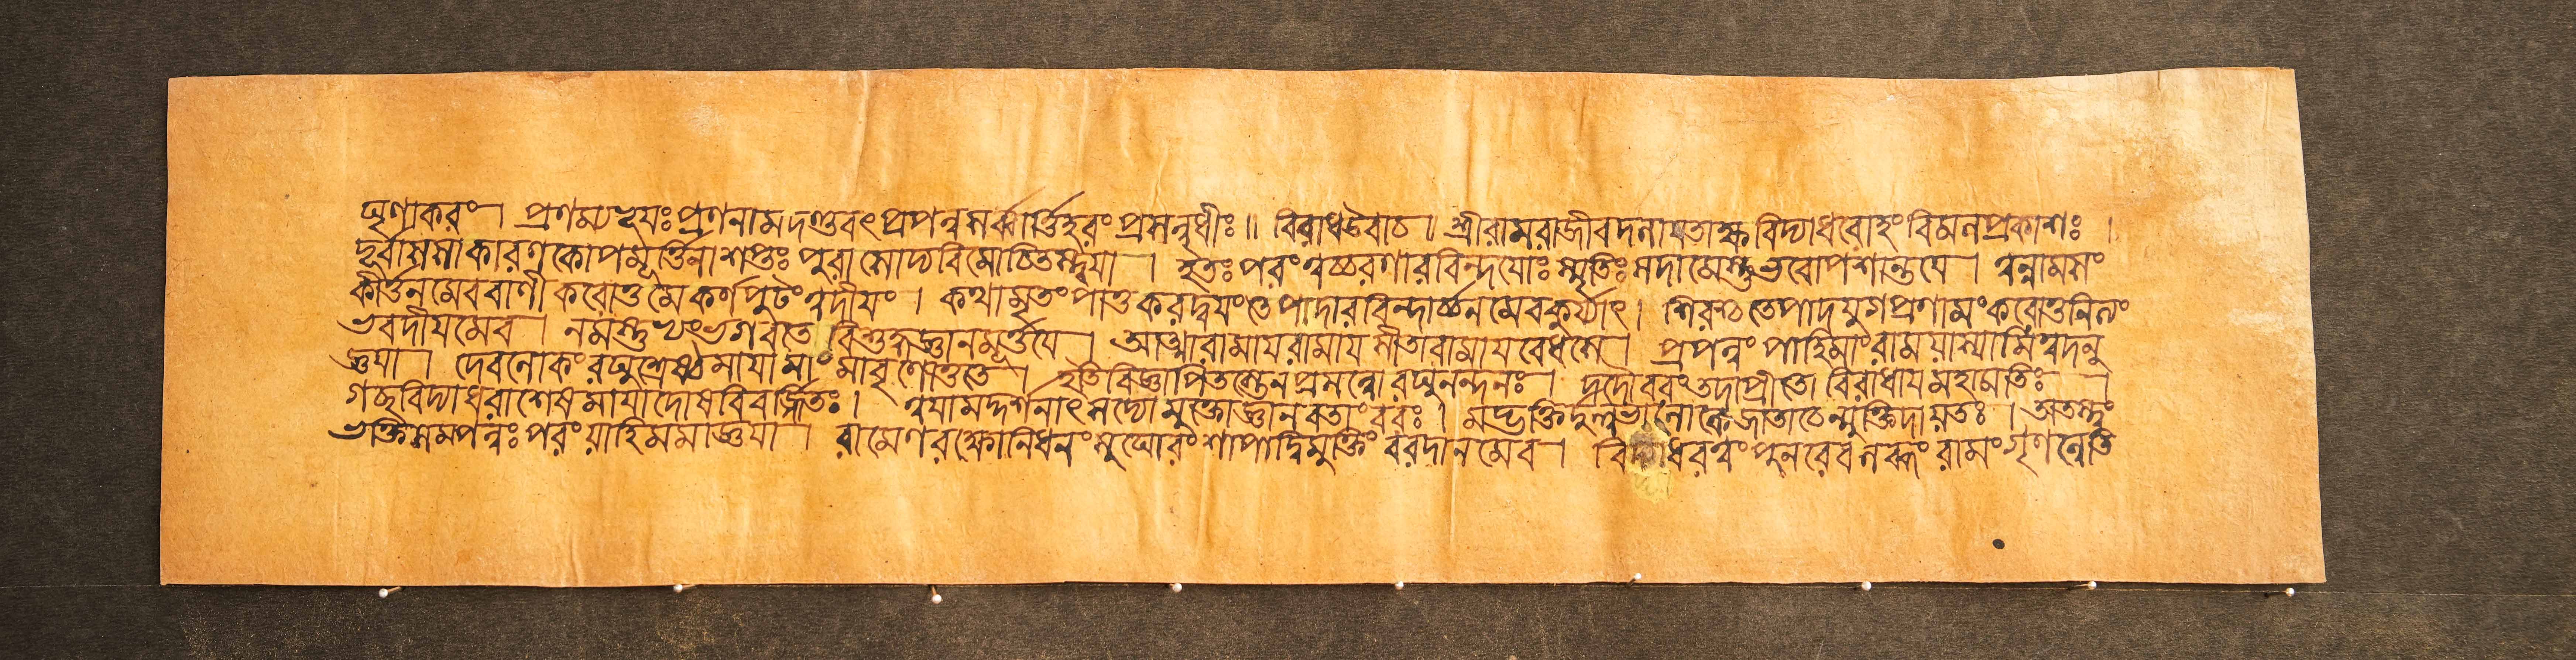 ঘৃণাকরং। প্রণম্যভূয়ঃপ্রণনামদণ্ডবৎপ্রপন্নসর্ব্বার্ত্তিহরংপ্রসন্নধীঃ॥ বিরাধউবাচ। শ্রীরামরাজীবদলায়তাক্ষবিদ্যাধরোহংবিমলপ্রকাশঃ।
দুর্বাসসাকারণকোপমূর্ত্তিনাশপ্তঃপুরাসোদ্যবিমোচিতস্ত্বয়া। ইতঃপরংত্বচ্চরণারবিন্দয়োঃস্মৃতিঃসদামেস্তুভবোপশান্তয়ে। ত্বন্নামসং
কীর্ত্তনমেববাণীকরোতুমেকর্ণপুটংত্বদীয়ং। কথামৃতংপাতুকরদ্বয়ংতেপাদারবিন্দার্চ্চনমেবকুর্য্যাৎ। শিরশ্চতেপাদযুগপ্রণামংকরোতুনিত্যং
ভবদীয়মেব। নমস্তুভ্যংভগবতেবিশুদ্ধজ্ঞানমূর্ত্তয়ে। আত্মারামায়রামায়সীতারামায়বেধসে। প্রপন্নংপাহিমাংরামযাস্যামিত্বদনু
জ্ঞয়া। দেবলোকংরঘুশ্রেষ্ঠমায়ামাংমাবৃণোতুতে। ইতিবিজ্ঞাপিতস্তেনপ্রসন্নোরঘুনন্দনঃ। দদৌবরংতদাপ্রীতোবিরাধায়মহামতিঃ।
গচ্ছবিদ্যাধরাশেষমায়াদোষবিবর্জ্জিতঃ। ত্বয়ামদ্দর্শনাৎসদ্যোমুক্তোজ্ঞানবতাংবরঃ। মদ্ভক্তির্দুল্লভালোকেজাতাচেন্মুক্তিদাযতঃ। অতস্ত্বং
ভক্তিসমপন্নঃপরংযাহিমমাজ্ঞয়া। রামেণরক্ষোনিধনংসুঘোরংশাপাদ্বিমুক্তিংবরদানমেব। বিদ্যাধরত্বংপুনরেবলব্ধংরামংগৃণন্নেতি